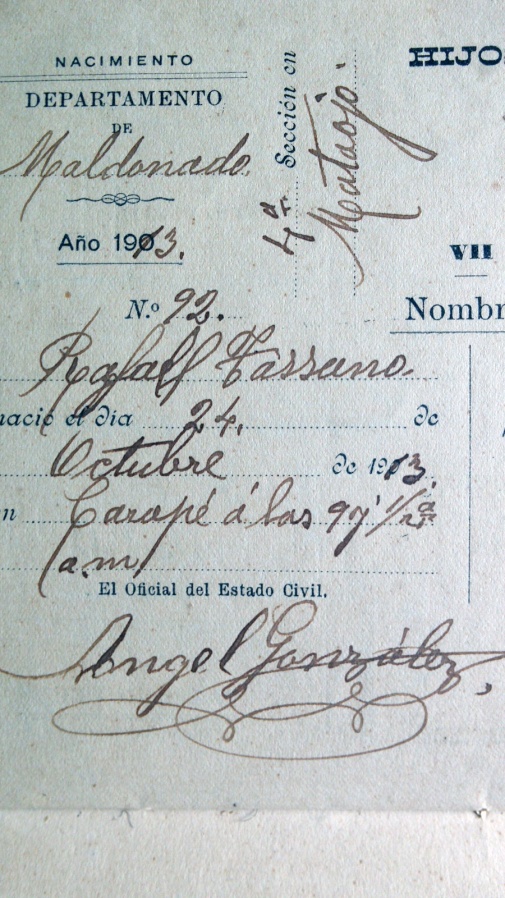 NACIMIENTO
DEPARTAMENTO
DE
Maldonado.
Año 1913.
N.º 92.
Rafael Tassano
nació el día 24. de
Octubre de 1913.
n Carapé á las 9 y 1/2
(a.m)
El Oficial del Estado Civil,
Angel González,
4ª Sección en
Mataojo.
HIJO
VII
Nombr